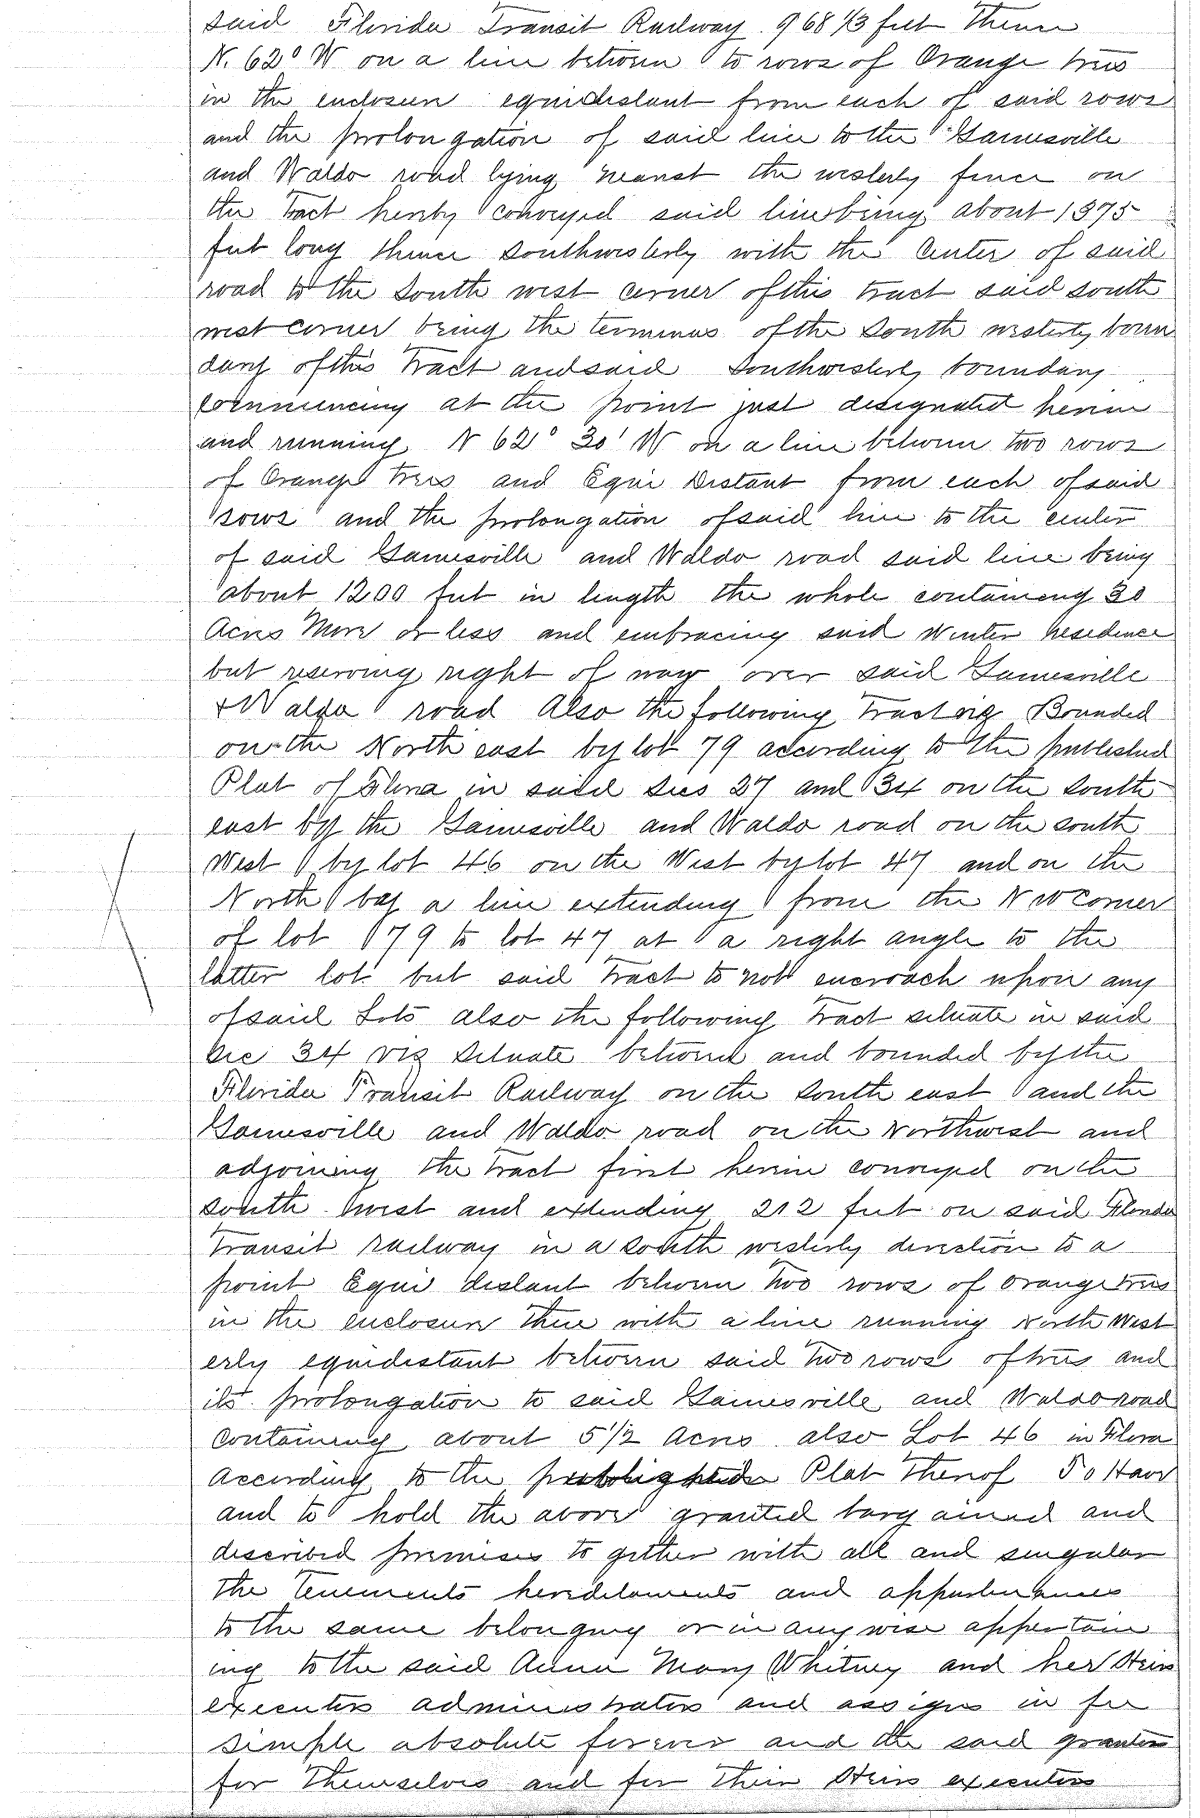 said Florida Transit Railway 968 1/3 feet Thence
N. 62° W on a line between to rows of Orange trees
in the enclosure equidistant from each of said rows
and the prolongation of said line to the Gainesville
and Waldo road lying nearest the westerly fence on
the Tract hereby conveyed said line being about 1375
feet long thence southwesterly with the Center of said
road to the South west corner of this tract said south
west corner being the terminus of the South westerly boun
dary of this Tract and said Southwesterly boundary
commencing at the point just designated herein
and running N 62° 30' W on a line between two rows
of Orange Trees and Equi Distant from each of said
rows and the prolongation of said line to the center
of said Gainesville and Waldo road said line being
about 1200 feet in length the whole containing 30
Acres More or less and embracing said Winter Residence
but reserving right of way over said Gainesville
+ Waldo road Also the following Tract viz Bounded
on the North east by lot 79 according to the published
Plat of Flora in said secs 27 and 34 on the South
east by the Gainesville and Waldo road on the south
West by lot 46 on the West by lot 47 and on the
North by a line extending from the N W Corner
of lot 79 to lot 47 at a right angle to the
latter lot but said Tract to not encroach upon any
of said Lots also the following Tract situate in said
Sec 34 viz Situate between and bounded by the
Florida Transit Railway on the South east and the
Gainesville and Waldo road on the Northwest and
adjoining the Tract first herein conveyed on the
south west and extending 212 feet on said Florida
Transit railway in a South westerly direction to a
point Equi distant between Two rows of orange trees
in the enclosure thence with a line running North West
erly equidistant between said Two rows of trees and
its prolongation to said Gainesville and Waldo road
Containing about 5 1/2 Acres also Lot 46 in Flora
According to the published Plat Thereof To Have
and to hold the above granted bargained and
described premises to gether with all and singular
the Tenements hereditaments and appurtenances
to the same belonging or in any wise appertain
ing to the said Anna Mary Whitney and her Heirs
executors administrators and assigns in fee
simple absolute forever and the said grantors
for Themselves and for Their Heirs executors